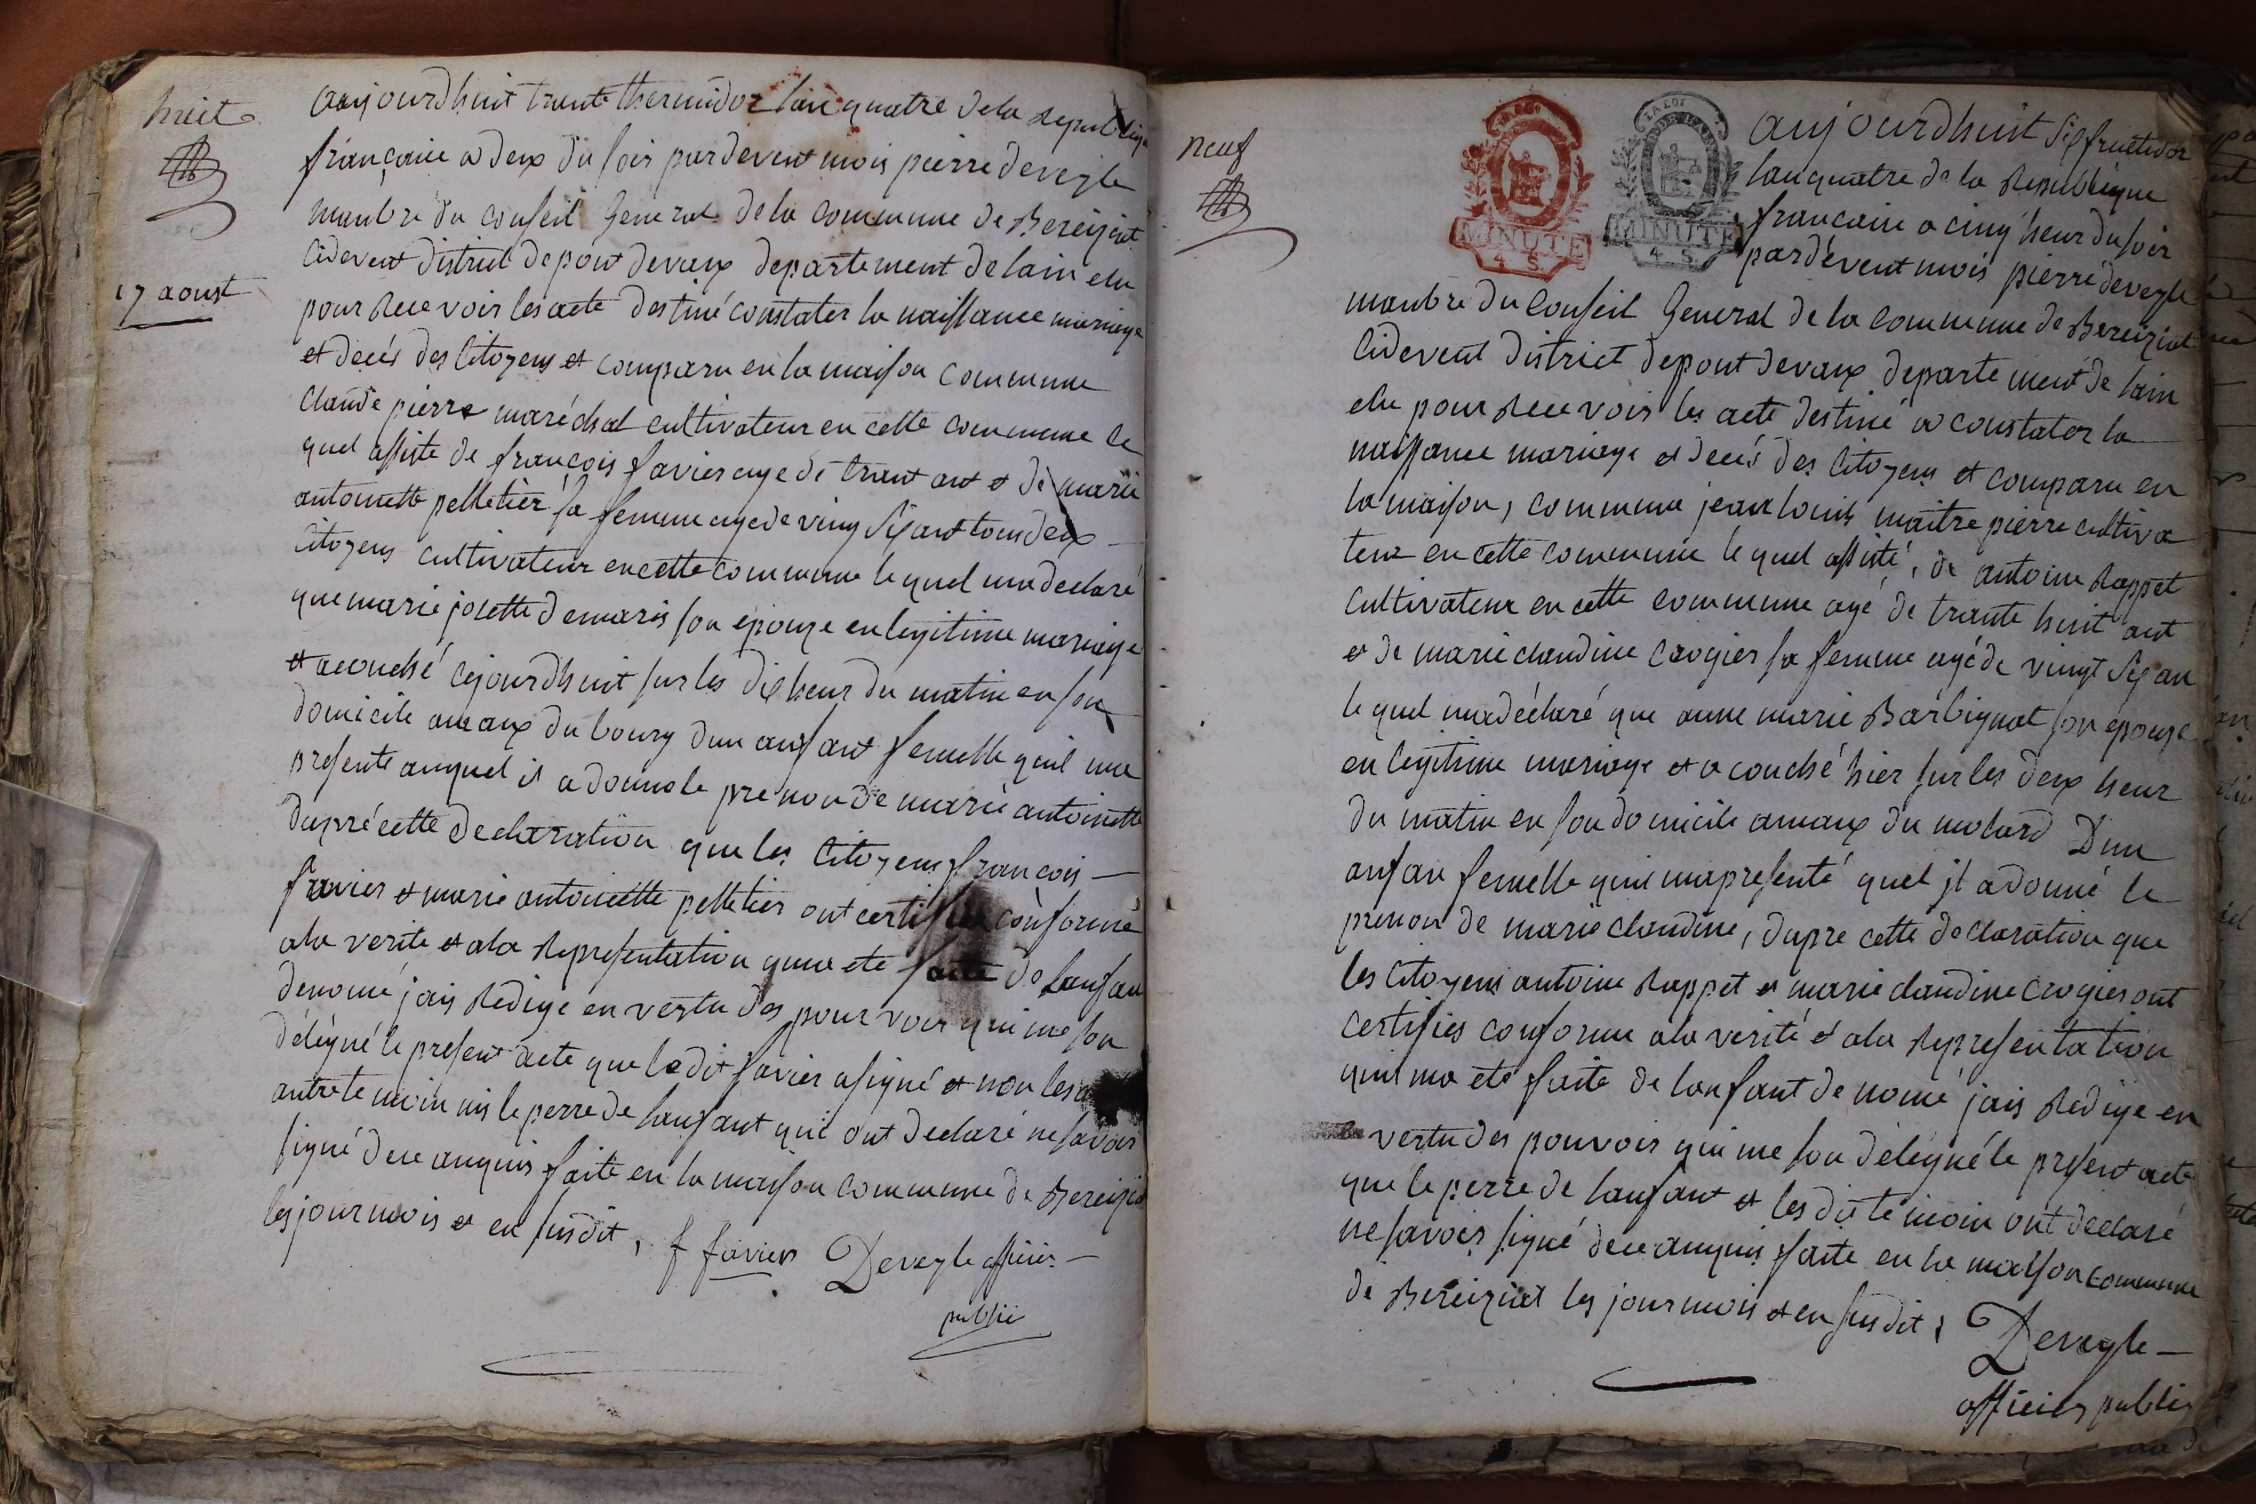 huit
17 aoust
aujourdhuit trente thermidor lan quatre de la republique
françaice a deux du soir pardevent mois pierre deveyle
manbre du conseil General de la commune de Bereiziat
cidevent district de pont devaux departement de lain elu
pour Recevoir les acte destiné constater la naissance mariage
et decés des Citoyens et comparu en la maison commune
claude pierre maréchal cultivateur en cette commune le
quel assiste de françois favier age de trant ant et de marie
antoinette pelletier sa femme age de ving six ant tous deux
Citoyens cultivateur en cette commune le quel ma declaré
que marie josette demaris son épouze en legitime mariage
et acouché cejourdhuit sur les dix heur du matin en son
domicile amaux du bourg dun anfant femelle quil ma
presente auquel il a donné le prenon de marie antoinette
dapré cette declaration que les Citoyens françois
favier et marie antoinette pelletier ont certifiee conforme
a la verite et a la Representation quma ete faite de lanfan
denomé jais Redige en vertu des pour voir qui me son
délégué le present acte que le dit favier a signé et non les
autre temoin nis le perre de lanfant qui ont declaré ne savoir
signé de ce anquis faite en la maison commune de Bereizia
les jour mois et en susdit, f favier Deveyle officier
public
neuf
MINUTE
4. S.
LA LOI
MINUTE
4. S.
aujourdhuit six fructidor
lan quatre de la Republique
francaice a cinq heur du soir
pardévent mois pierre deveyle
manbre du conseil General de la commune de Bereiziat
cidevent district de pont devaux departement de lain
elu pour Recevoir les acte destiné a constater la
naissance mariage et decés des Citoyens et comparu en
la maison, commune jean louis maitre pierre cultiva
teur en cette commune le quel assisté, de antoine Rappet
cultivateur en cette commune agé de trante huit ant
et de marie claudine Crogier sa femme agé de vingt six an
le quel ma déclaré que anne marie Barbignat son épouze
en legitime mariage et a couché hier sur les deux heur
du matin en son domicile amaux du molard Dun
anfan femelle quil ma presenté quel jl a donné le
prenon de marie claudine, dapre cette declaration que
les Citoyens antoine Rappet et marie claudine Crogier ont
certifies conforme a la verité et a la Representation
quil ma eté faite de lanfant de nomé jais Redige en
vertu des pouvoir qui me son délégué le présent acte
que le perre de lanfant et les dis témoin ont declaré
ne savoir signé de ce anquis faite en la maison commune
de Bereiziat les jour mois et en susdit, Deveyle
officier public